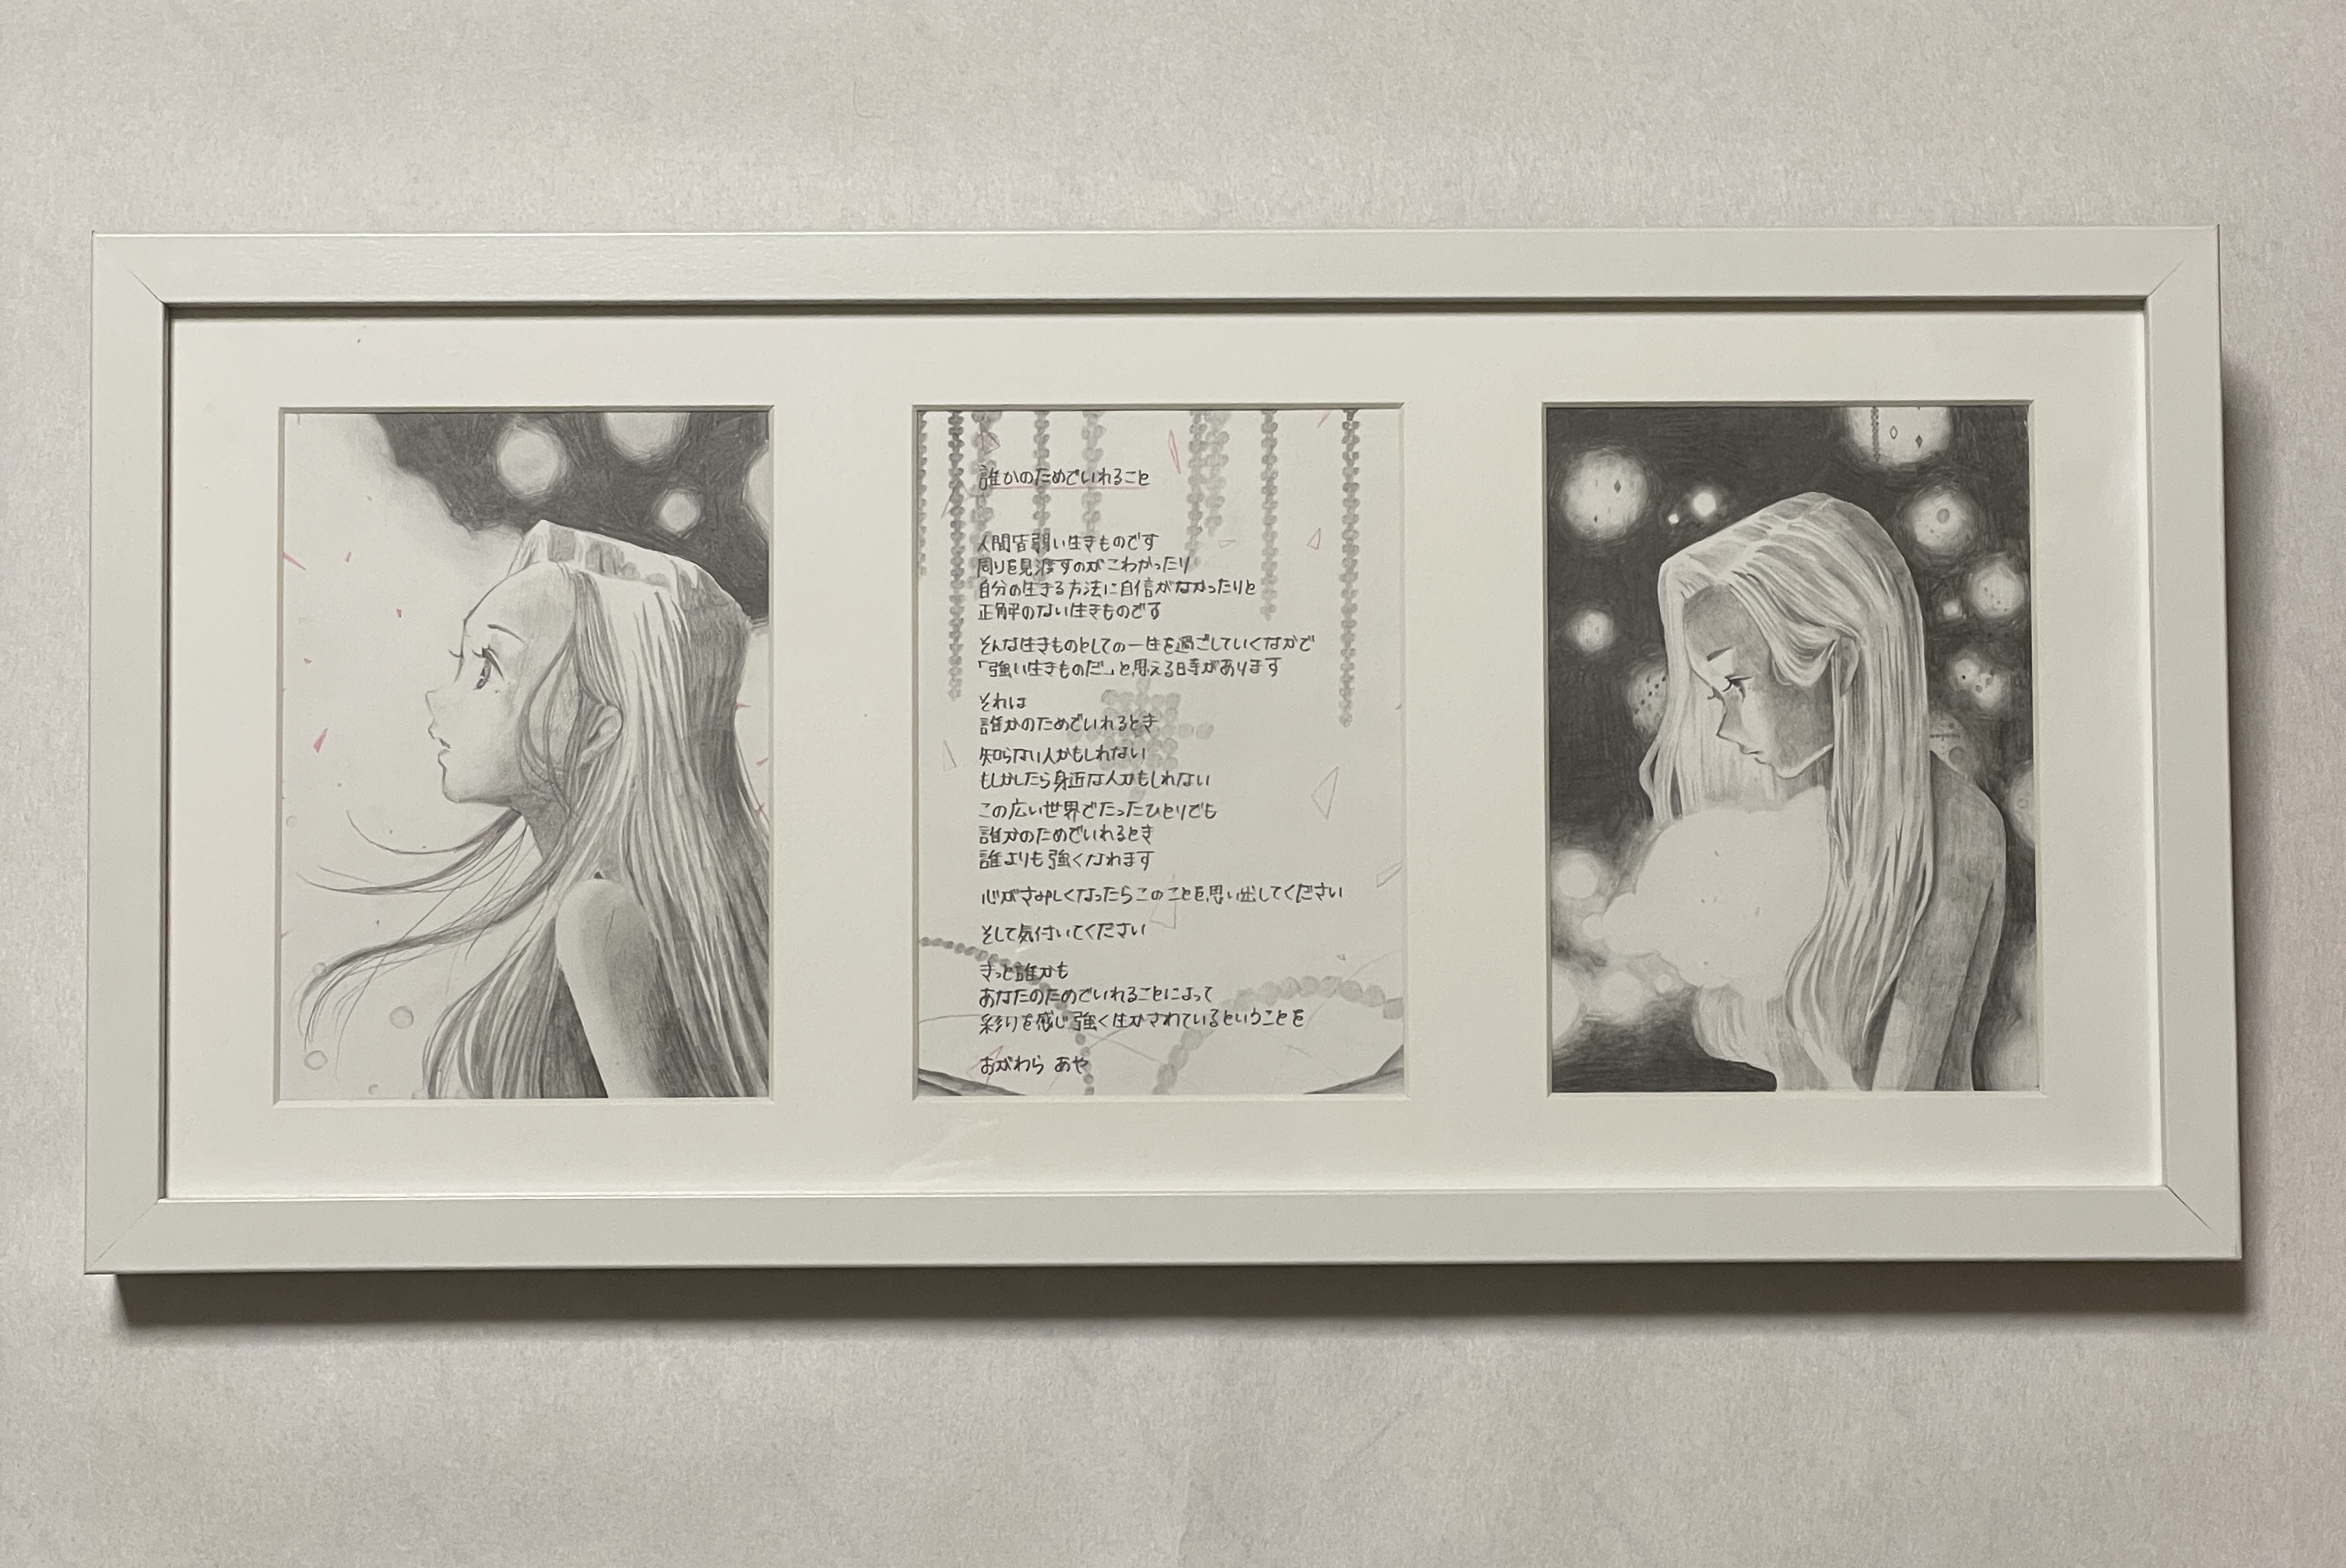 誰かのためでいれること
人間皆弱い生きものです
周りを見渡すのがこわかったり
自分の生きる方法に自信がなかったりと
正解のない生きものです
そんな生きものとしての一生を過ごしていくなかで
「強い生きものだ」と思える時があります
それは
誰かのためでいれるとき
知らない人かもしれない
もしかしたら身近な人かもしれない
この広い世界でたったひとりでも
誰かのためでいれるとき
誰よりも強くなれます
心がさみしくなったらこのことを思い出してください
そして気付いてください
きっと誰かも
あなたのためでいれることによって
彩りを感じ強く生かされているということを
おがわら あや